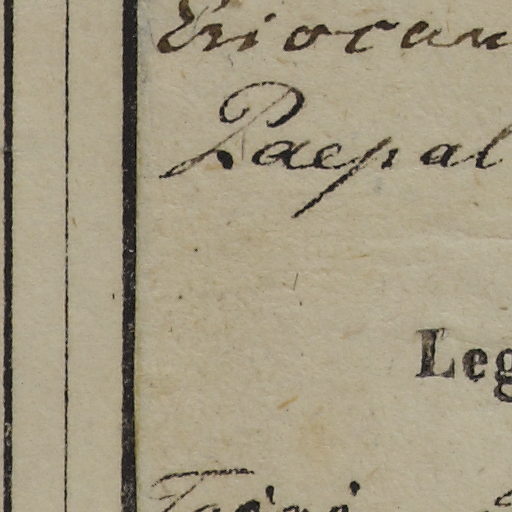 Eriocau
Paepal
Leg